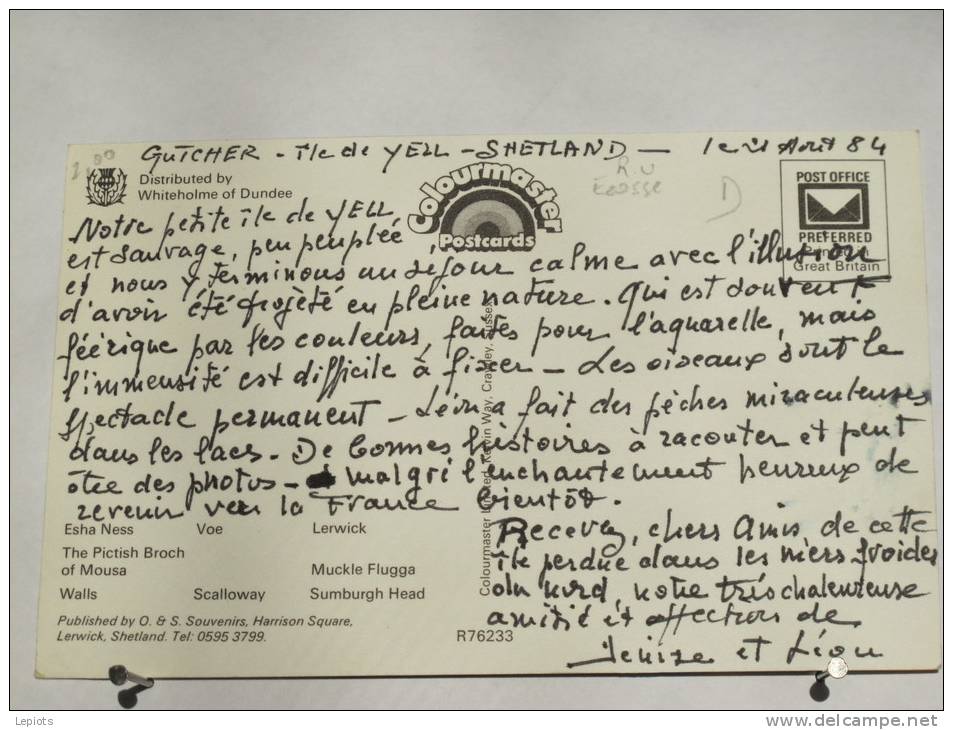 GUTCHER - île de YELL - SHETLAND - le 21 Avril 84
Distributed by
Whiteholme of Dundee
Colourmaster
Postcards
R.U
Ecosse
D
POST OFFICE
PREFERRED
Printed in
Great Britain
Notre petite île de YELL
est sauvage, peu peuplée,
et nous y terminons un séjour calme avec l'illusion
d'avoir été projeté en pleine nature. Qui est souvent
féérique par les couleurs, faites pour l'aquarelle, mais
l'immensité est difficile à fixer - Les oiseaux sont le
spectacle permanent - Léon a fait des pêches miraculeuses
dans les lacs. De bonnes histoires à raconter et peut
être des photos - malgré l'enchantement heureux de
revenir vers la France bientôt.
Recevez, chers Amis de cette
île perdue dans les mers froides
du nord, notre très chaleureuse
amitié et affection de
Denise et Léon
Esha Ness Voe Lerwick
The Pictish Broch
of Mousa Muckle Flugga
Walls Scalloway Sumburgh Head
Published by O. & S. Souvenirs, Harrison Square,
Lerwick, Shetland. Tel: 0595 3799.
R76233
Colourmaster Limited, Kelvin Way, Crawley, Sussex
Lepiots
www.delcampe.net